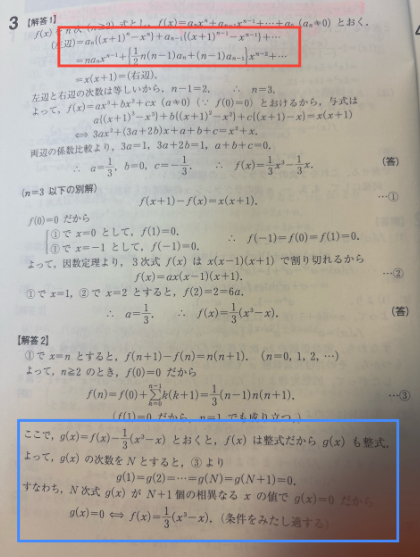 3 【解答1】
f(x) n次(n≧2)すとし, f(x)=aₙxⁿ+aₙ₋₁xⁿ⁻¹+…+a₀(aₙ≠0) とおく.
(左辺)=aₙ{(x+1)ⁿ-xⁿ}+aₙ₋₁{(x+1)ⁿ⁻¹-xⁿ⁻¹}+…
=naₙxⁿ⁻¹+{1/2 n(n-1)aₙ+(n-1)aₙ₋₁}xⁿ⁻²+…
=x(x+1)=(右辺).
左辺と右辺の次数は等しいから, n-1=2. ∴ n=3.
よって, f(x)=ax³+bx²+cx (a≠0) (∵ f(0)=0) とおけるから, 与式は
a{(x+1)³-x³}+b{(x+1)²-x²}+c{(x+1)-x}=x(x+1)
⇔ 3ax²+(3a+2b)x+a+b+c=x²+x.
両辺の係数比較より, 3a=1, 3a+2b=1, a+b+c=0.
∴ a=1/3, b=0, c=-1/3. ∴ f(x)=1/3x³-1/3x. (答)
(n=3 以下の別解)
f(x+1)-f(x)=x(x+1). …①
f(0)=0 だから
①で x=0 として, f(1)=0.
①で x=-1 として, f(-1)=0. ∴ f(-1)=f(0)=f(1)=0.
よって, 因数定理より, 3次式 f(x) は x(x-1)(x+1) で割り切れるから
f(x)=ax(x-1)(x+1). …②
①で x=1, ②で x=2 とすると, f(2)=2=6a.
∴ a=1/3. ∴ f(x)=1/3(x³-x). (答)
【解答2】
①で x=n とすると, f(n+1)-f(n)=n(n+1). (n=0, 1, 2, …)
よって, n≧2 のとき, f(0)=0 だから
f(n)=f(0)+Σₖ₌₀ⁿ⁻¹k(k+1)=1/3(n-1)n(n+1). …③
(f(1)=0 だから, n=1 でも成り立つ.)
ここで, g(x)=f(x)-1/3(x³-x) とおくと, f(x) は整式だから g(x) も整式.
よって, g(x) の次数を N とすると, ③より
g(1)=g(2)=…=g(N)=g(N+1)=0.
すなわち, N次式 g(x) が N+1 個の相異なる x の値で g(x)=0 だから
g(x)=0 ⇔ f(x)=1/3(x³-x). (条件をみたし適する)
4